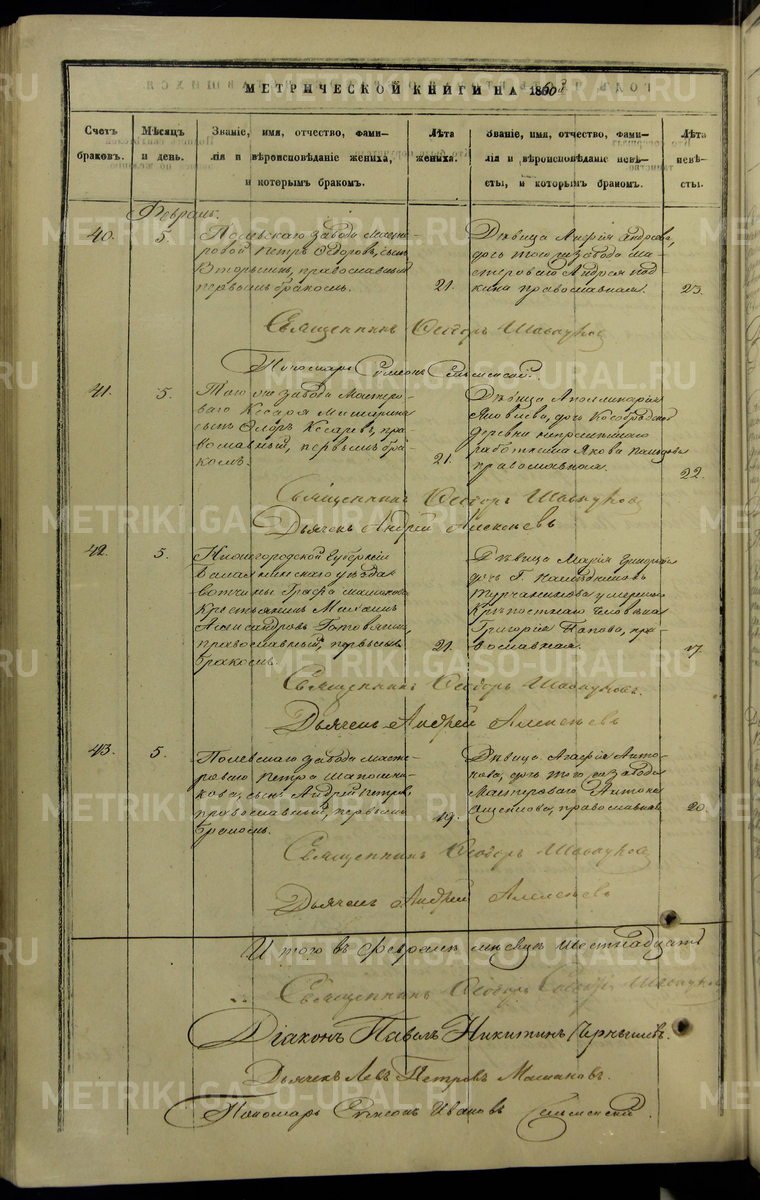 МЕТРИЧЕСКОЙ КНИГИ НА 1860й
Счетъ браковъ.
Мѣсяцъ и день.
Званіе, имя, отчество, фами-
лія и вѣроисповѣданіе жениха,
и которымъ бракомъ.
Лѣта жениха.
Званіе, имя, отчество, фами-
лія и вѣроисповѣданіе невѣ-
сты, и которымъ бракомъ.
Лѣта невѣ-
сты.
Февраль.
40.
5.
Полевскаго завода Масте-
ровой Петръ Ѳедоровъ, сынъ
православный
первымъ бракомъ.
21.
Дѣвица Андреева,
дочь того же завода Ма-
стероваго Андрея
православная.
23.
Священникъ Ѳеодоръ
Пономарь Симеонъ
41.
5.
Того же завода Мастеро-
ваго Кесаря
сынъ Флоръ Кесаревъ, пра-
вославный, первымъ бра-
комъ.
21.
Дѣвица Аполлинарія
Яковлева, дочь Кособродской
деревни непремѣннаго
работника Якова
православная.
22.
Священникъ Ѳеодоръ
Дьячекъ Андрей Алексѣевъ
42.
5.
Нижегородской Губерніи
уѣзда
вотчины Графа
крестьянинъ Михаилъ
Александровъ
православный, первымъ
бракомъ.
21.
Дѣвица Марія
дочь Г. Наслѣдниковъ
Турчанинова умершаго
крѣпостнаго человѣка
Григорія Попова, пра-
вославная.
17.
Священникъ Ѳеодоръ
Дьячекъ Андрей Алексѣевъ
43.
5.
Полевскаго завода Масте-
роваго Петра Шапошни-
кова, сынъ Андрей Петровъ,
православный, первымъ
бракомъ.
19.
Дѣвица Агафія Анто-
нова, дочь того же завода
Мастероваго Антона
православная
20.
Священникъ Ѳеодоръ
Дьячекъ Андрей Алексѣевъ
Итого въ Февралѣ мѣсяцѣ шестнадцать
Священникъ Ѳеодоръ
Діаконъ Павелъ Никитинъ Чернышевъ.
Дьячекъ Левъ Петровъ
Пономарь Симеонъ Ивановъ
METRIKI.GASO-URAL.RU